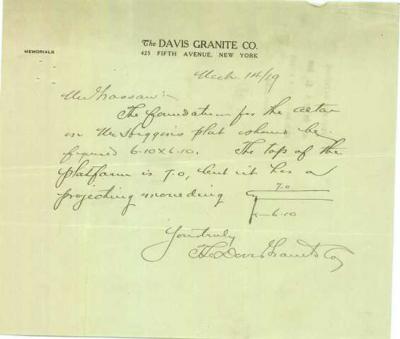 The DAVIS GRANITE CO.
MEMORIALS
425 FIFTH AVENUE, NEW YORK
Mch 14/19
Mr
The foundation for the altar
on Mr Higgins plat should be
figured 6-10 x 6-10. The top of the
platform is 7.0, but it has a
projecting moulding
7.0
6-10
Yours truly
The Davis Granite Co